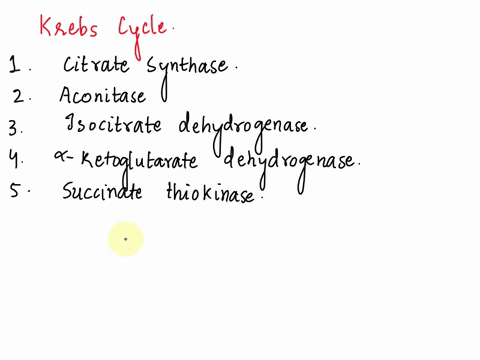 Krebs Cycle.
1. Citrate Synthase.
2. Aconitase
3. Isocitrate dehydrogenase.
4. α-Ketoglutarate dehydrogenase.
5. Succinate thiokinase.